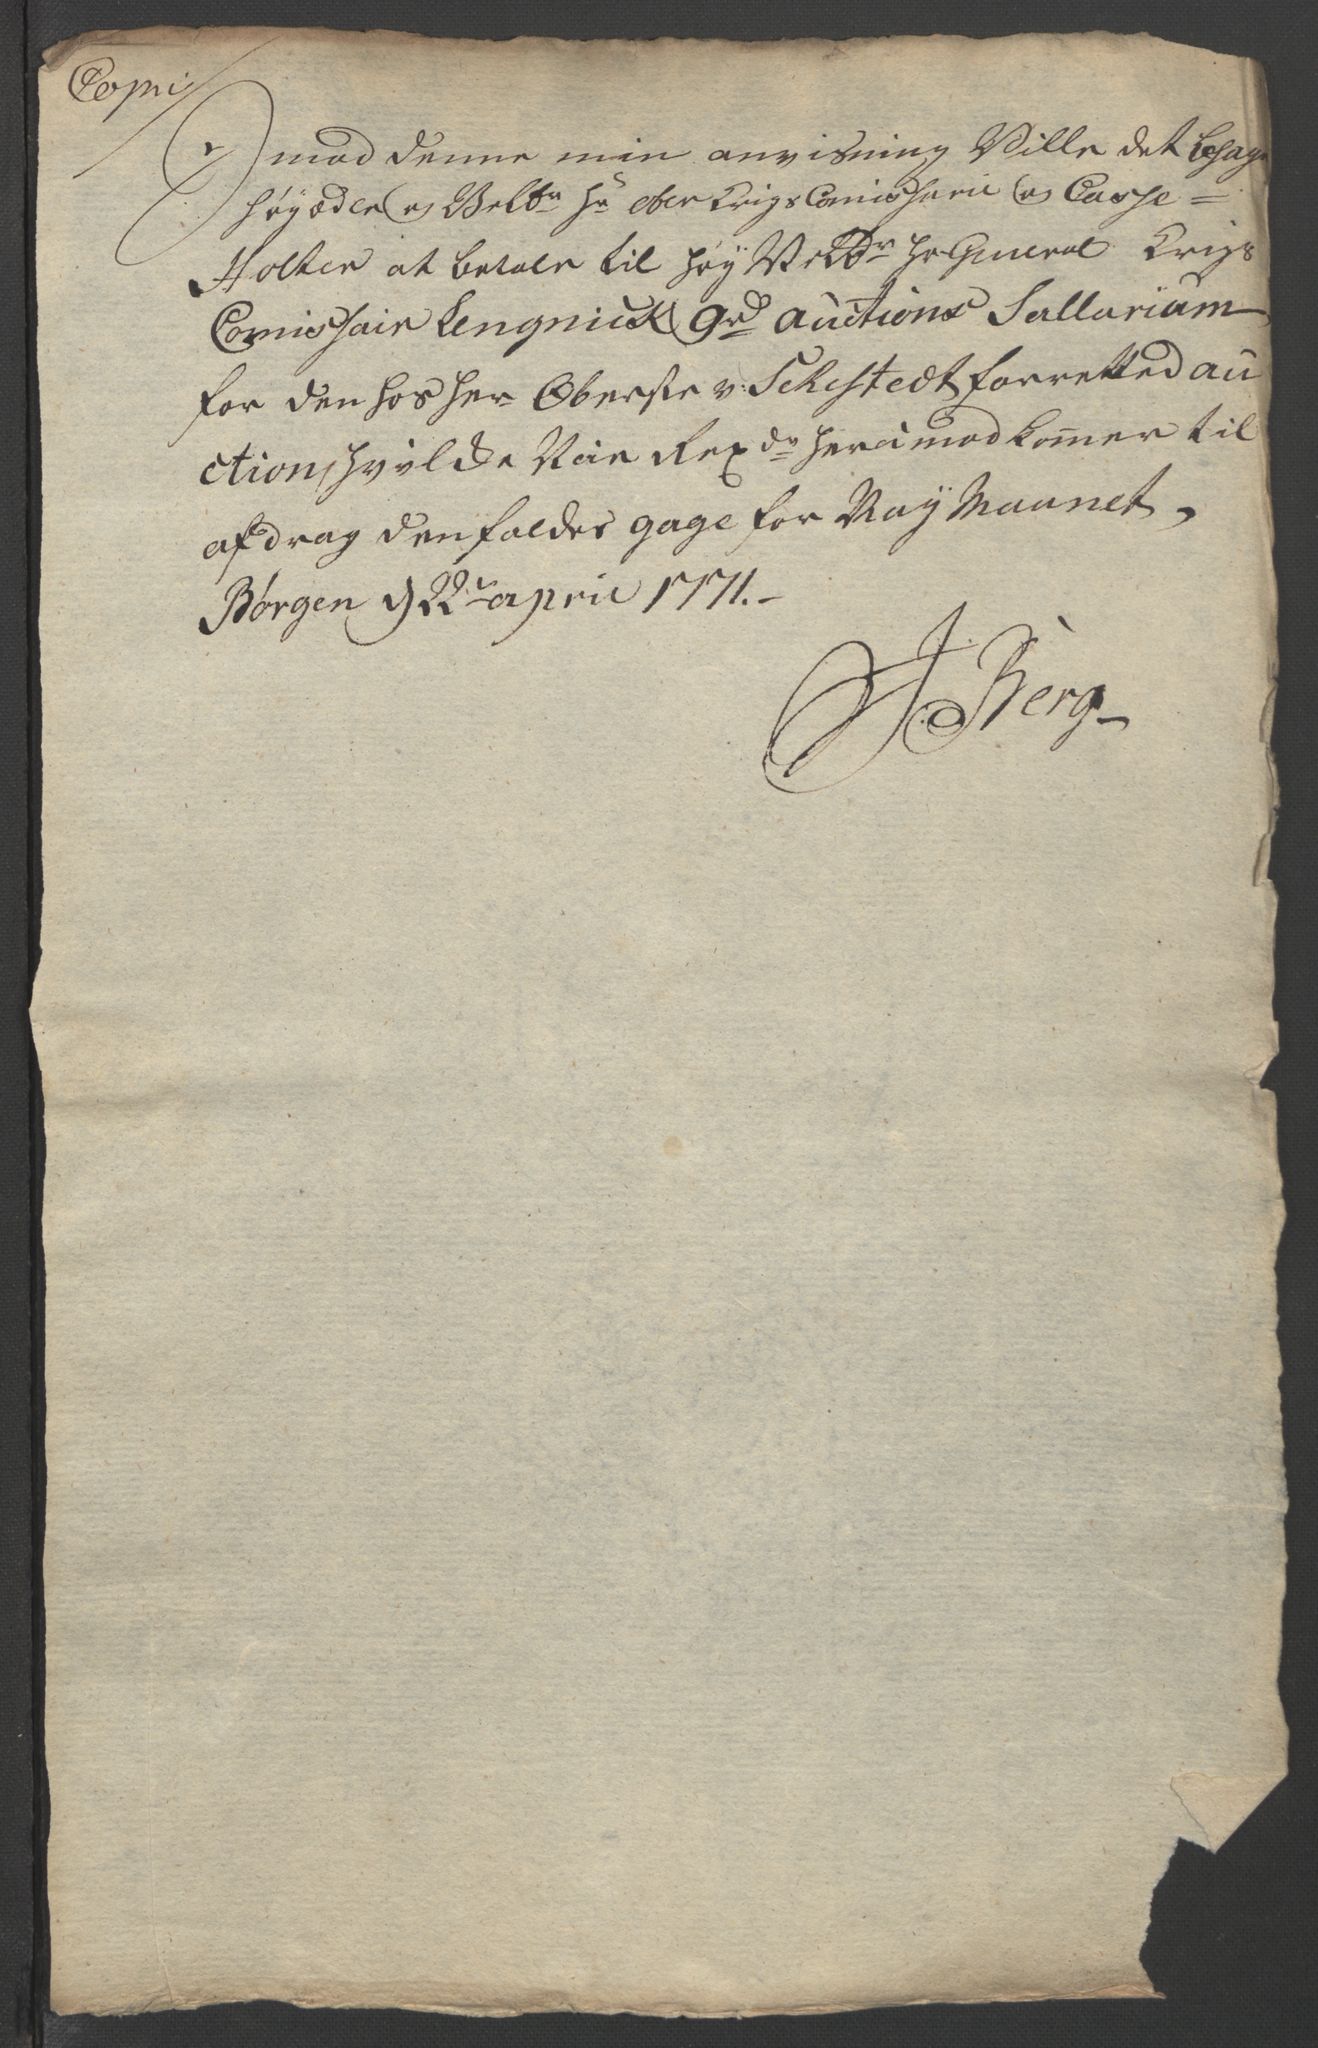 Copi
Imod denne min anvisning Ville det behage
høyædle og Velbr Hr ober Krigs Comissarie og Casse =
Holter at betale til høy Velbr Hr General Krigs
Comissair Lengnick 9rd auctions Sallarium
for den hos Her Oberste v: Sehestedt forretted au
ction, hvilke Nie Rexdr herimod kommer til
afdrag den faldes gage for May Maanet,
Børgen d 22de april 1771.
J Berg